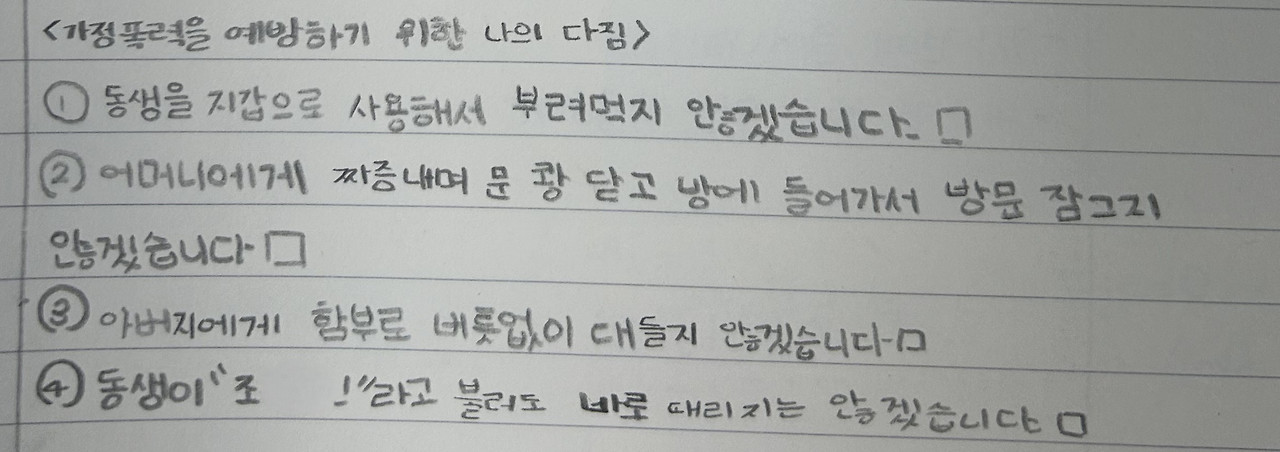 <가정폭력을 예방하기 위한 나의 다짐>
① 동생을 지갑으로 사용해서 부려먹지 않겠습니다. □
② 어머니에게 짜증내며 문 쾅 닫고 방에 들어가서 방문 잠그지
않겠습니다. □
③ 아버지에게 함부로 버릇없이 대들지 않겠습니다. □
④ 동생이 "조   !"라고 불러도 바로 때리지는 않겠습니다. □